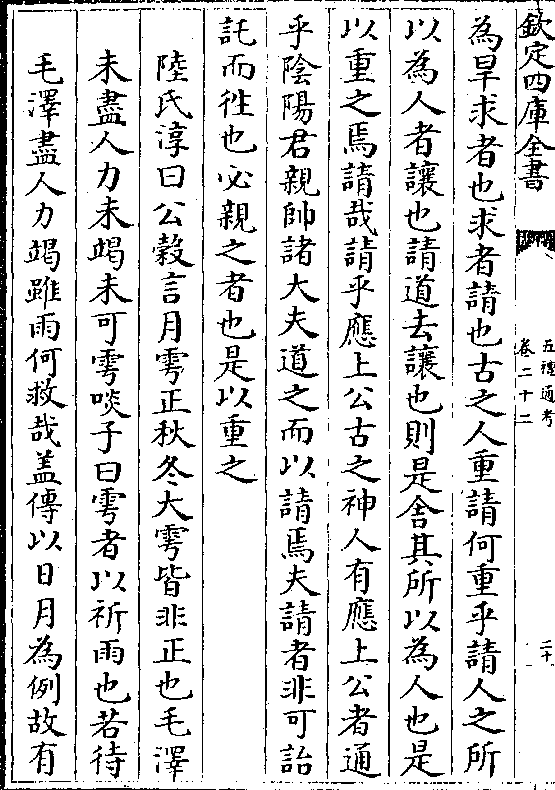 欽定四庫全書
五禮通考
卷二十二
二十
為旱求者也求者請也古之人重請何重乎請人之所
以為人者讓也請道去讓也則是舍其所以為人也是
以重之焉請哉請乎應上公古之神人有應上公者通
乎陰陽君親帥諸大夫道之而以請焉夫請者非可詒
託而徃也必親之者也是以重之
陸氏淳曰公穀言月雩正秋冬大雩皆非正也毛澤
未盡人力未竭未可雩啖子曰雩者以祈雨也若待
毛澤盡人力竭雖雨何救哉盖傳以日月為例故有